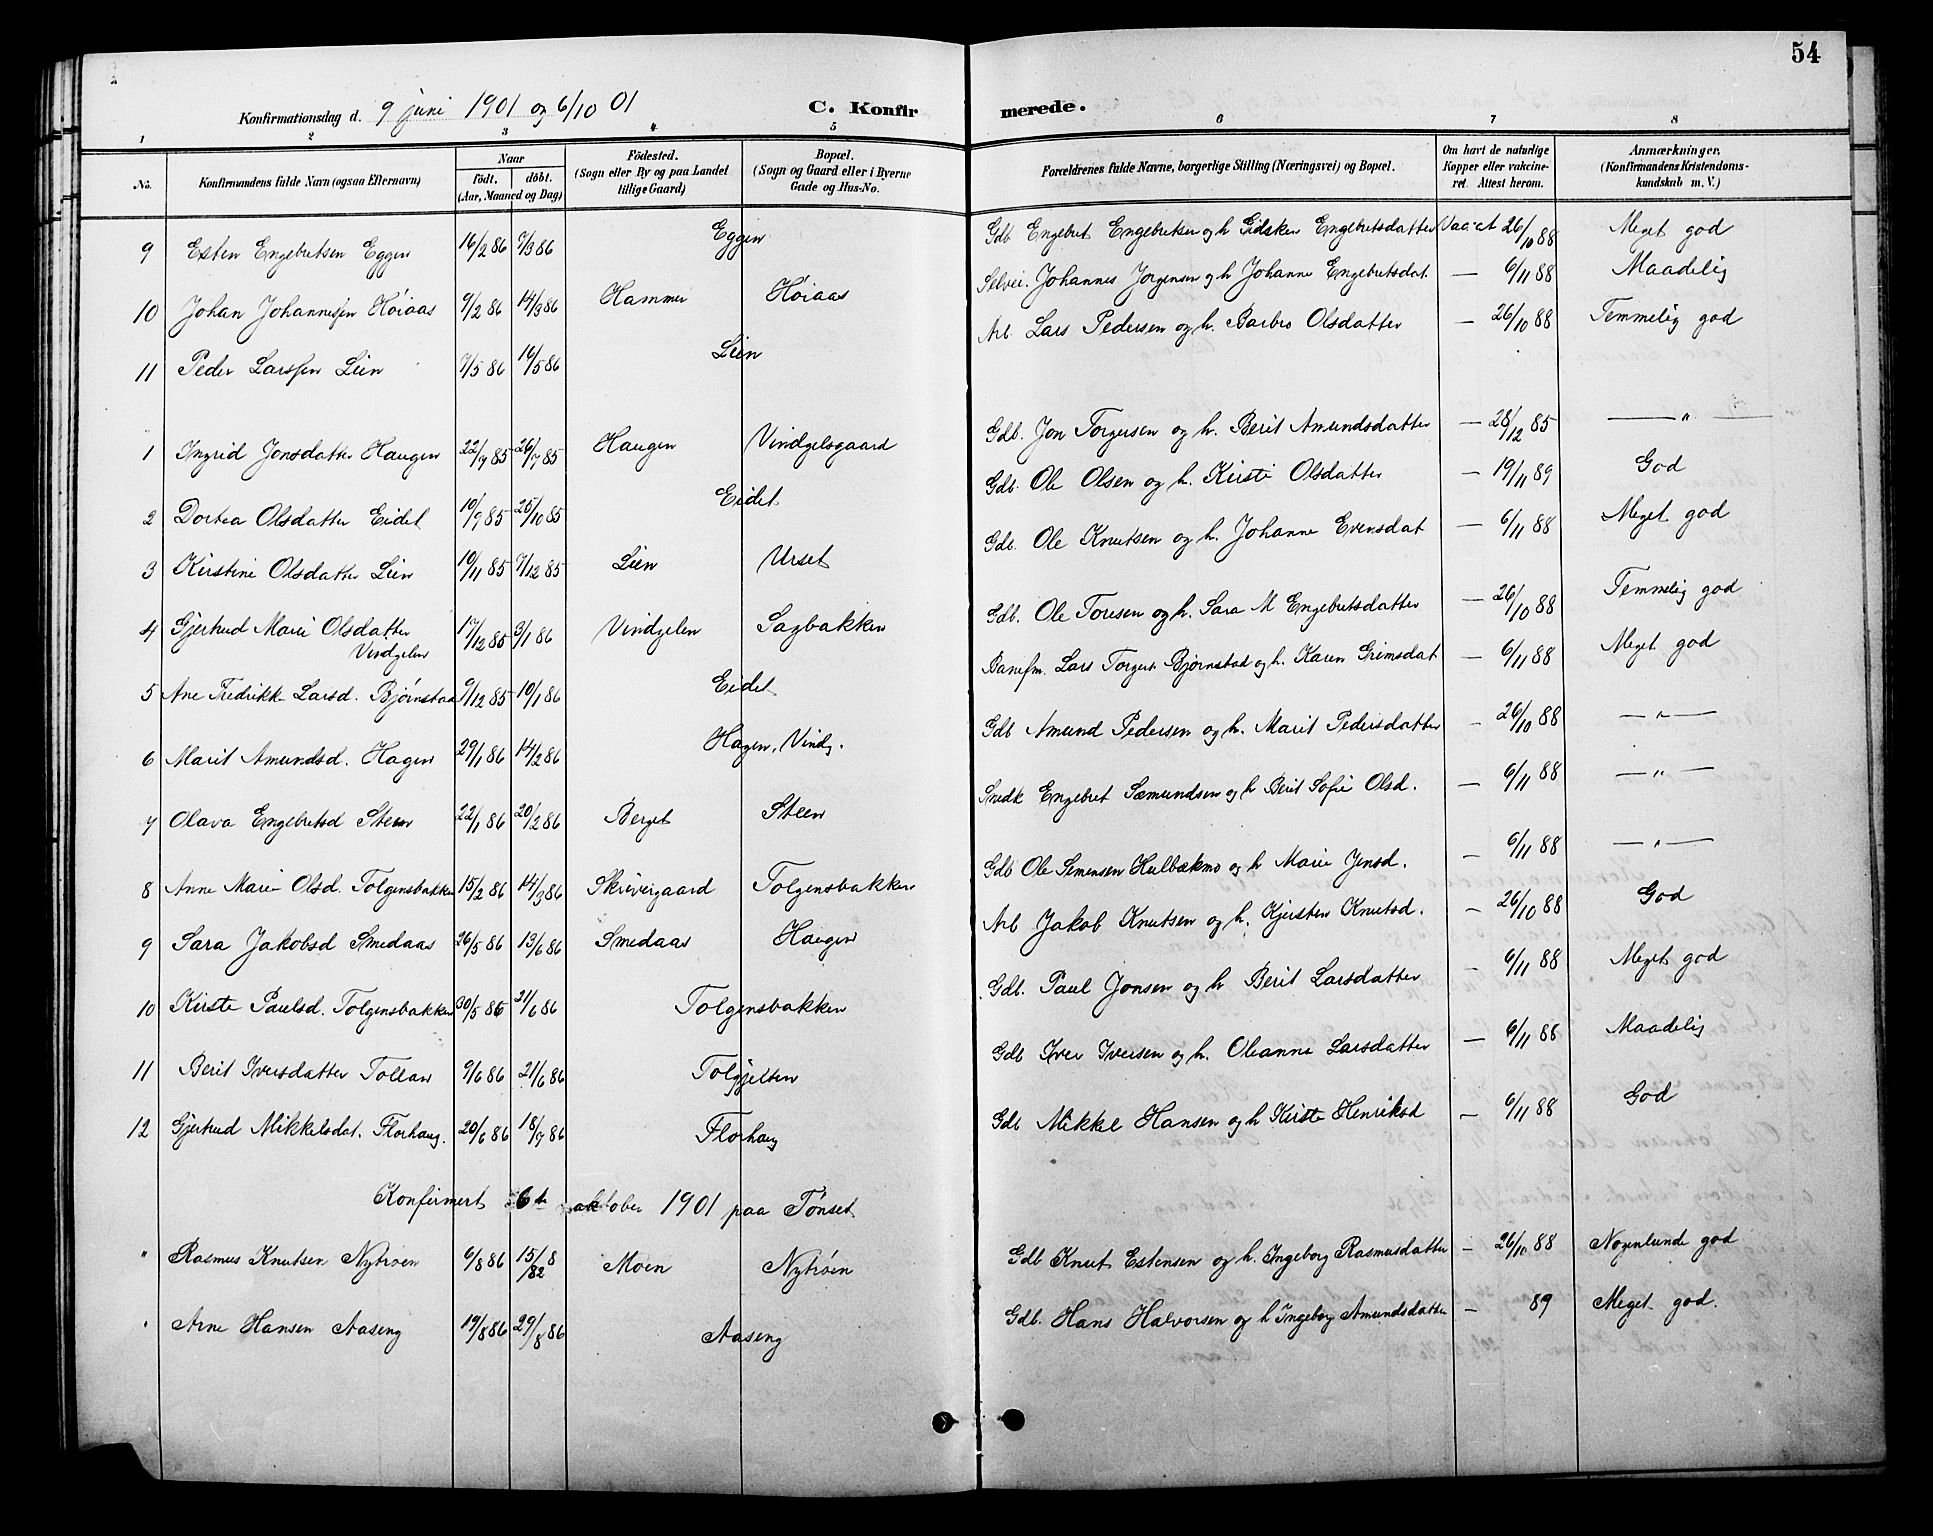 54
Konfirmationsdag d. 9 juni 1901 og 6/10 01 C. Konfirmerede.
1 2 3 4 5 6 7 8
No. Konfirmandens fulde Navn (ogsaa Efternavn) Naar födt, döbt. (Aar, Maaned og Dag) Födested. (Sogn eller By og paa Landet tillige Gaard) Bopæl. (Sogn og Gaard eller i Byerne Gade og Hus-No. Forældrenes fulde Navne, borgerlige Stilling (Næringsvei) og Bopæl. Om havt de naturlige Kopper eller vakcineret. Attest herom. Anmærkninger. (Konfirmandens Kristendomskundskab m. V.)
9 Esten Engebretsen Eggen 16/2 86 7/3 86 Eggen Gdb Engebret Engebretsen og h Gidsken Engebretsdatter 26/10 88 Meget god
10 Johan Johannesen Höiaas 9/2 86 14/3 86 Hammer Höiaas Selvei. Johannes Jorgensen og h Johanne Engebretsdat. — 6/11 88 Maadelig
11 Peder Larssen Lien 7/5 86 16/5 86 Lien Arb Lars Pedersen og h. Barbro Olsdatter — 26/10 88 Temmelig god
1 Ingrid Jonsdatter Haugen 22/9 85 26/7 85 Haugen Vindgelsgaard Gdb. Jon Torgersen og h. Berit Amundsdatter — 28/12 85 — " —
2 Dortea Olsdatter Eidet 10/9 85 25/10 85 Eidet Gdb. Ole Olsen og h. Kirsti Olsdatter — 19/11 89 God
3 Kirstine Olsdatter Lien 10/11 85 7/12 85 Lien Urset Gdb. Ole Knutsen og h. Johanne Evensdat — 6/11 88 Meget god
4 Gjertrud Marie Olsdatter Vindgelen 17/12 85 3/1 86 Vindgelen Sagbakken Gdb. Ole Toresen og h. Sara M Engebretsdatter — 26/10 88 Temmelig god
5 Ane Fredrikke Larsd. Bjørnstad 9/12 85 10/1 86 Eidet Banefm. Lars Torgers. Bjørnstad og h. Karen Grimsdat — 6/11 88 Meget god
6 Marit Amundsd. Hagen 29/1 86 14/2 86 Hagen, Vindg. Gdb Amund Pedersen og h. Marit Pedersdatter — 26/10 88 — " —
7 Olava Engebretsd Steen 22/1 86 20/2 86 Berget Steen Snedk Engebret Sæmundsen og h Berit Sofie Olsd. — 6/11 88 — " —
8 Anne Marie Olsd. Tolgensbakken 15/2 86 14/3 86 Skrivergaard Tolgensbakken Gdb Ole Simensen Hulbækmo og h Marie Jensd. — 6/11 88 — " —
9 Sara Jakobsd Smedaas 26/5 86 13/6 86 Smedaas Haugen Arb Jakob Knutsen og h. Kjersten Knutsd. — 26/10 88 God
10 Kirste Paulsd. Tolgensbakken 30/5 86 21/6 86 Tolgensbakken Gdb. Paul Jonsen og h Berit Larsdatter — 6/11 88 Meget god
11 Berit Iversdatter Tollan 9/6 86 21/6 86 Tolgjelten Gdb Iver Iversen og h. Oleanna Larsdatter — 6/11 88 Maadelig
12 Gjertrud Mikkelsdat. Florhaug. 20/6 86 18/7 86 Florhaug Gdb Mikkel Hansen og h Kirste Henriksd — 6/11 88 God
Konfirmert 6te oktober 1901 paa Tönset
" Rasmus Knutsen Nytröen 6/8 86 15/8 82 Moen Nytröen Gdb Knut Estensen og h. Ingeborg Rasmusdatter — 26/10 88 Nogenlunde god
" Arne Hansen Aaseng 19/8 86 29/8 86 Aaseng Gdb. Hans Halvorsen og h Ingeborg Amundsdatter — 89 Meget god.